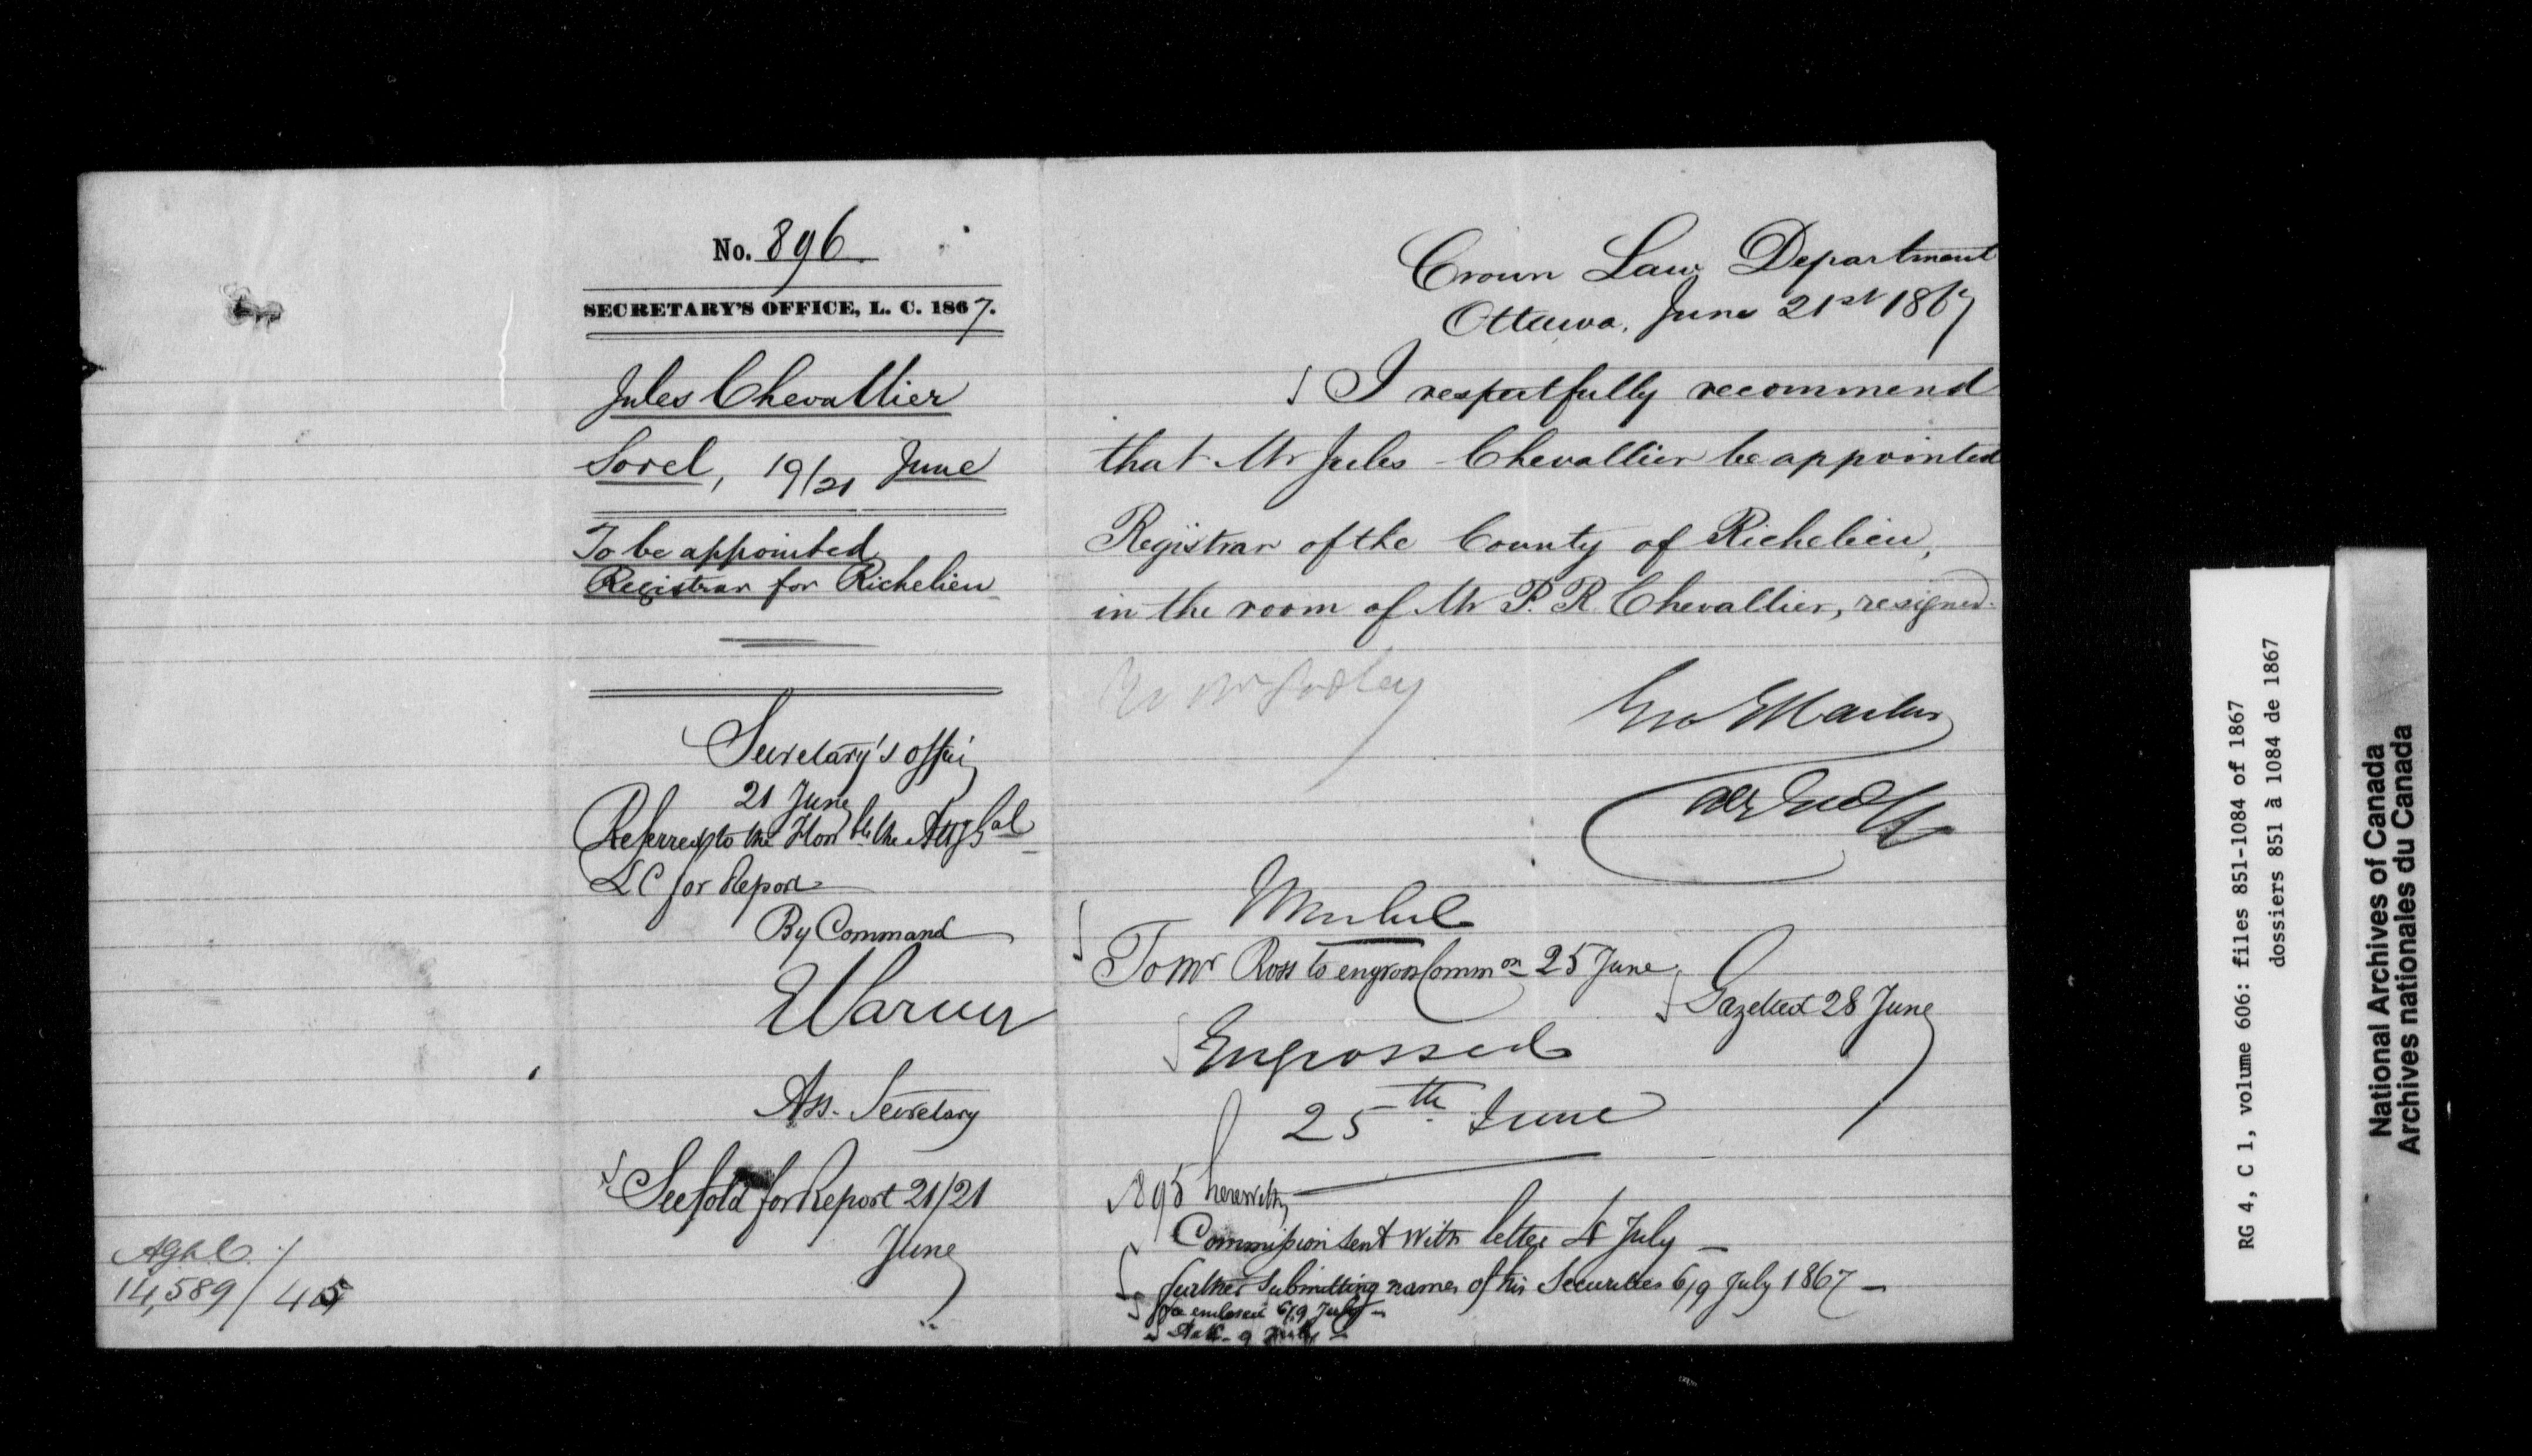 No. 896
SECRETARY'S OFFICE, L. C. 1867.
Jules Chevallier
Sorel, 19/21 June
To be appointed
Registrar for Richelieu
Secretary's office
21 June
Referred to the Honble the Atty Gal
LC for Report
By Command
Ass. Secretary
See fold for Report 21/21
June
14,589 /
Crown Law Department
Ottawa, June 21st 1867
I respectfully recommend
that Mr Jules Chevallier be appointed
Registrar of the County of Richelieu,
in the room of Mr P. R. Chevallier, resigned.
To Mr Ross to engross Common 25 June
Gazetted 28 June
Engrossed
25th June
895 herewith
Commission sent with letter 4 July
further submitting names of his Securities 6/9 July 1867
enclosed 6/9 July
9 July
RG 4, C 1, volume 606: files 851-1084 of 1867
dossiers 851 à 1084 de 1867
National Archives of Canada
Archives nationales du Canada